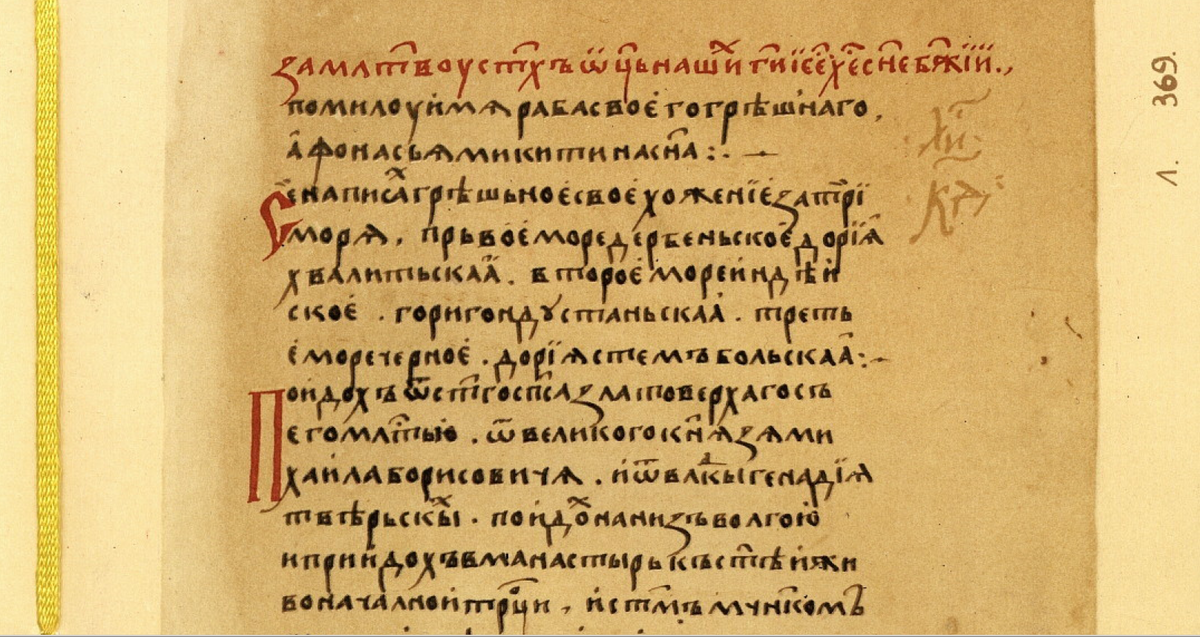 за млтв оу стхъ ѿць наших ги їсе хе сне бжїи.,
помилоуй мя раба своего грѣшнаго,
афонасья микитина сна :. —
Се написах грѣшьное свое хожение за три
моря, прьвое море дербеньское дорїя
хвалитьскаа. второе море индѣй
ское. гори гондустаньскаа. треть
ее море черное. дорїя стемъбольскаа :—
Поидохъ ѿ стго спса златоверхаго съ
его млтью. ѿ великого князя ми
хаила борисовичя. и ѿ влкы генадїя
твѣрьскых. поидох на низъ волгою
и приидохъ в манастырь къ стѣй жи
воначалной трци, и стмъ мчнкомъ
Л. 369.